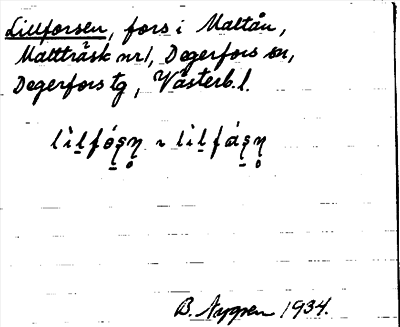 Lillforsen, fors i Maltån,
Maltträsk nr 1, Degerfors sn,
Degerfors tg, Västerb. l.
B. Nygren 1934.